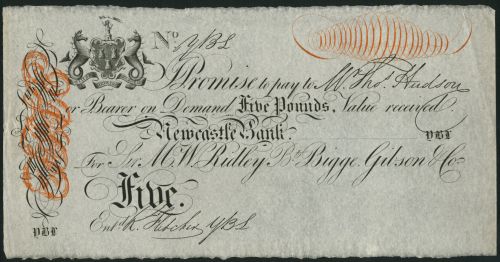 No yBL
Promise to pay to Mr. Thos. Hudson
or Bearer on Demand Five Pounds, Value received.
Newcastle Bank. yBL
For Sir M. W. Ridley Bt. Bigge, Gibson & Co.
Five.
Entd. R. Fletcher yBL
yBL